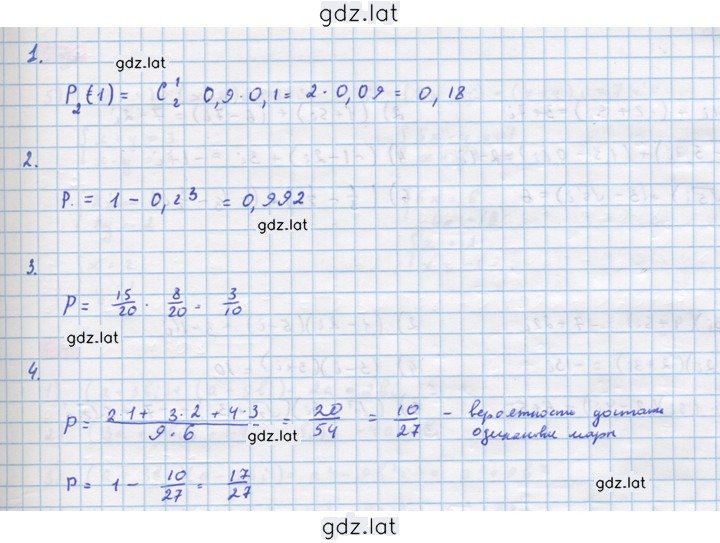 gdz.lat
1.
gdz.lat
P₂(1) = C₂¹ 0,9 · 0,1 = 2 · 0,09 = 0,18
2.
P. = 1 - 0,2³ = 0,992
gdz.lat
3.
P = 15/20 · 8/20 = 3/10
gdz.lat
4.
P = (2·1 + 3·2 + 4·3)/(9·6) = 20/54 = 10/27 - вероятности достать
gdz.lat
одинаковые шары
P = 1 - 10/27 = 17/27
gdz.lat
gdz.lat